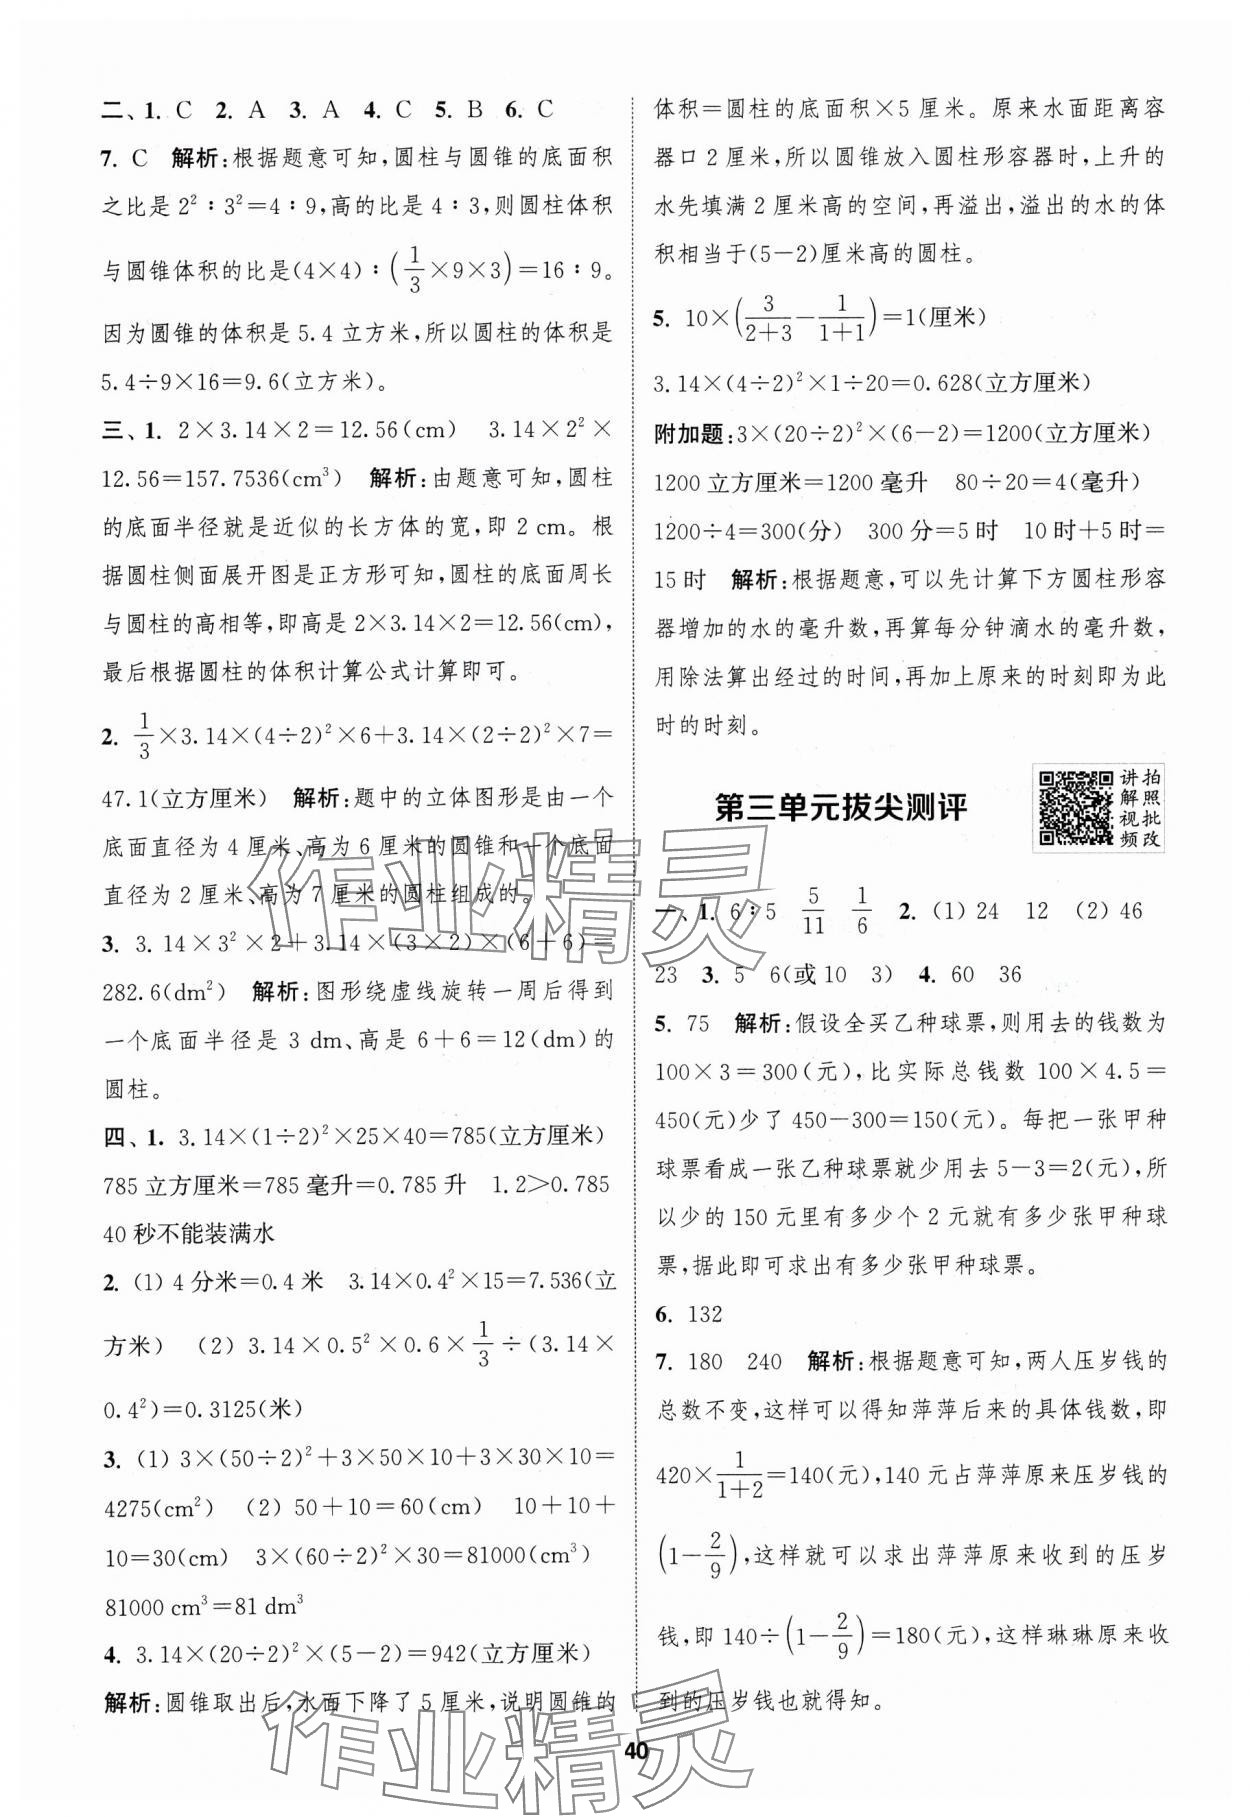 二、1. C 2. A 3. A 4. C 5. B 6. C
7. C 解析:根据题意可知,圆柱与圆锥的底面积
之比是2²∶3²=4∶9,高的比是4∶3,则圆柱体积
与圆锥体积的比是(4×4)∶(1/3×9×3)=16∶9。
因为圆锥的体积是5.4立方米,所以圆柱的体积是
5.4÷9×16=9.6(立方米)。
三、1. 2×3.14×2=12.56(cm) 3.14×2²×
12.56=157.7536(cm³) 解析:由题意可知,圆柱
的底面半径就是近似的长方体的宽,即2 cm。根
据圆柱侧面展开图是正方形可知,圆柱的底面周长
与圆柱的高相等,即高是2×3.14×2=12.56(cm),
最后根据圆柱的体积计算公式计算即可。
2. 1/3×3.14×(4÷2)²×6+3.14×(2÷2)²×7=
47.1(立方厘米) 解析:题中的立体图形是由一个
底面直径为4厘米、高为6厘米的圆锥和一个底面
直径为2厘米、高为7厘米的圆柱组成的。
3. 3.14×3²×2+3.14×(3×2)×(6+6)=
282.6(dm²) 解析:图形绕虚线旋转一周后得到
一个底面半径是3 dm、高是6+6=12(dm)的
圆柱。
四、1. 3.14×(1÷2)²×25×40=785(立方厘米)
785立方厘米=785毫升=0.785升 1.2>0.785
40秒不能装满水
2. (1) 4分米=0.4米 3.14×0.4²×15=7.536(立
方米) (2) 3.14×0.5²×0.6×1/3÷(3.14×
0.4²)=0.3125(米)
3. (1) 3×(50÷2)²+3×50×10+3×30×10=
4275(cm²) (2) 50+10=60(cm) 10+10+
10=30(cm) 3×(60÷2)²×30=81000(cm³)
81000 cm³=81 dm³
4. 3.14×(20÷2)²×(5−2)=942(立方厘米)
解析:圆锥取出后,水面下降了5厘米,说明圆锥的
体积=圆柱的底面积×5厘米。原来水面距离容
器口2厘米,所以圆锥放入圆柱形容器时,上升的
水先填满2厘米高的空间,再溢出,溢出的水的体
积相当于(5−2)厘米高的圆柱。
5. 10×(3/(2+3)−1/(1+1))=1(厘米)
3.14×(4÷2)²×1÷20=0.628(立方厘米)
附加题:3×(20÷2)²×(6−2)=1200(立方厘米)
1200立方厘米=1200毫升 80÷20=4(毫升)
1200÷4=300(分) 300分=5时 10时+5时=
15时 解析:根据题意,可以先计算下方圆柱形容
器增加的水的毫升数,再算每分钟滴水的毫升数,
用除法算出经过的时间,再加上原来的时刻即为此
时的时刻。
第三单元拔尖测评
拍照批改
讲解视频
一、1. 6∶5 5/11 1/6 2. (1) 24 12 (2) 46
23 3. 5 6(或10 3) 4. 60 36
5. 75 解析:假设全买乙种球票,则用去的钱数为
100×3=300(元),比实际总钱数100×4.5=
450(元)少了450−300=150(元)。每把一张甲种
球票看成一张乙种球票就少用去5−3=2(元),所
以少的150元里有多少个2元就有多少张甲种球
票,据此即可求出有多少张甲种球票。
6. 132
7. 180 240 解析:根据题意可知,两人压岁钱的
总数不变,这样可以得知萍萍后来的具体钱数,即
420×1/(1+2)=140(元),140元占萍萍原来压岁钱的
(1−2/9),这样就可以求出萍萍原来收到的压岁
钱,即140÷(1−2/9)=180(元),这样琳琳原来收
到的压岁钱也就得知。
40
作业精灵
作业精灵